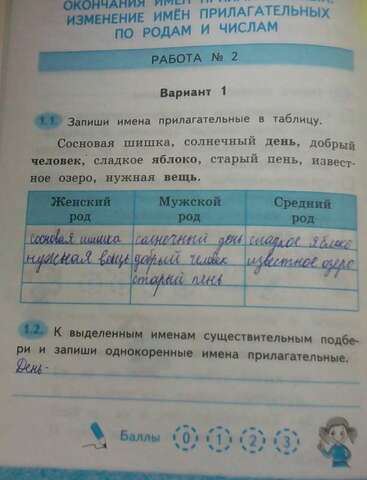 ОКОНЧАНИЯ ИМЁН
ИЗМЕНЕНИЕ ИМЁН ПРИЛАГАТЕЛЬНЫХ
ПО РОДАМ И ЧИСЛАМ
РАБОТА № 2
Вариант 1
1.1. Запиши имена прилагательные в таблицу.
Сосновая шишка, солнечный день, добрый
человек, сладкое яблоко, старый пень, извест-
ное озеро, нужная вещь.
Женский род Мужской род Средний род
сосновая шишка солнечный день сладкое яблоко
нужная вещь человек известное озеро
старый пень
1.2. К выделенным именам существительным подбе-
ри и запиши однокоренные имена прилагательные.
День-
Баллы 0 1 2 3